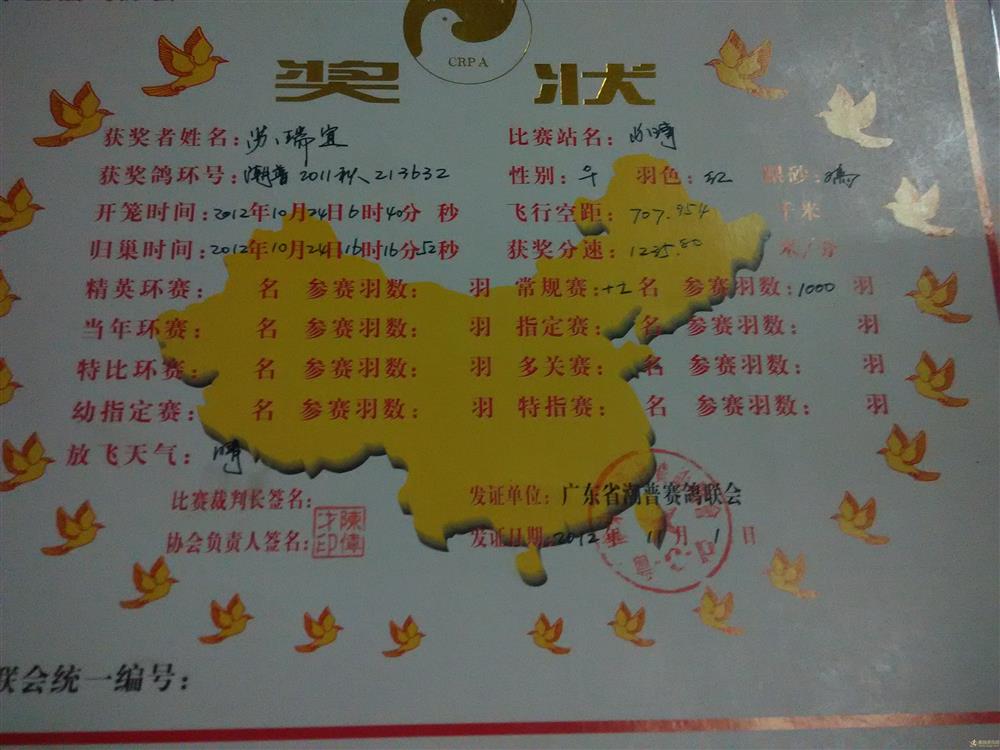 CRPA
奖状
获奖者姓名：苏瑞宜 比赛站名：
获奖鸽环号：潮普2011秋213632 性别：羽色：红 眼砂：
开笼时间：2012年10月24日6时40分 秒 飞行空距：707.954 千米
归巢时间：2012年10月24日16时16分52秒 获奖分速：1235.80 米/分
精英环赛： 名 参赛羽数： 羽 常规赛：+2名 参赛羽数：1000 羽
当年环赛： 名 参赛羽数： 羽 指定赛： 名 参赛羽数： 羽
特比环赛： 名 参赛羽数： 羽 多关赛： 名 参赛羽数： 羽
幼指定赛： 名 参赛羽数： 羽 特指赛： 名 参赛羽数： 羽
放飞天气：晴
比赛裁判长签名： 发证单位：广东省潮普赛鸽联会
协会负责人签名：陈伟才印 发证日期：2012年11月1日
联会统一编号：